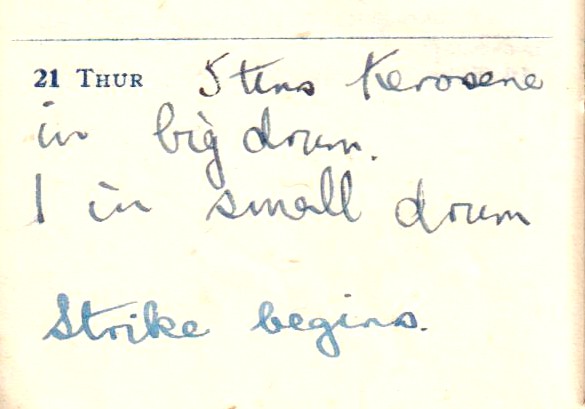 21 THUR 5 tins Kerosene
in big drum.
1 in small drum
Strike begins.